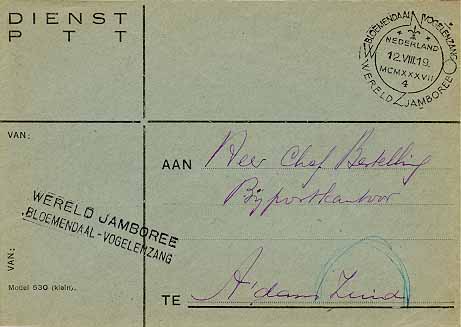 DIENST
PTT
BLOEMENDAAL VOGELENZANG
NEDERLAND
12.VIII.19.
MCMXXXVII
4
WERELD JAMBOREE
VAN:
AAN Heer Chef Bestelling
Bijpostkantoor
WERELD JAMBOREE
BLOEMENDAAL-VOGELENZANG
VAN:
Model 530 (klein).
TE A'dam Zuid